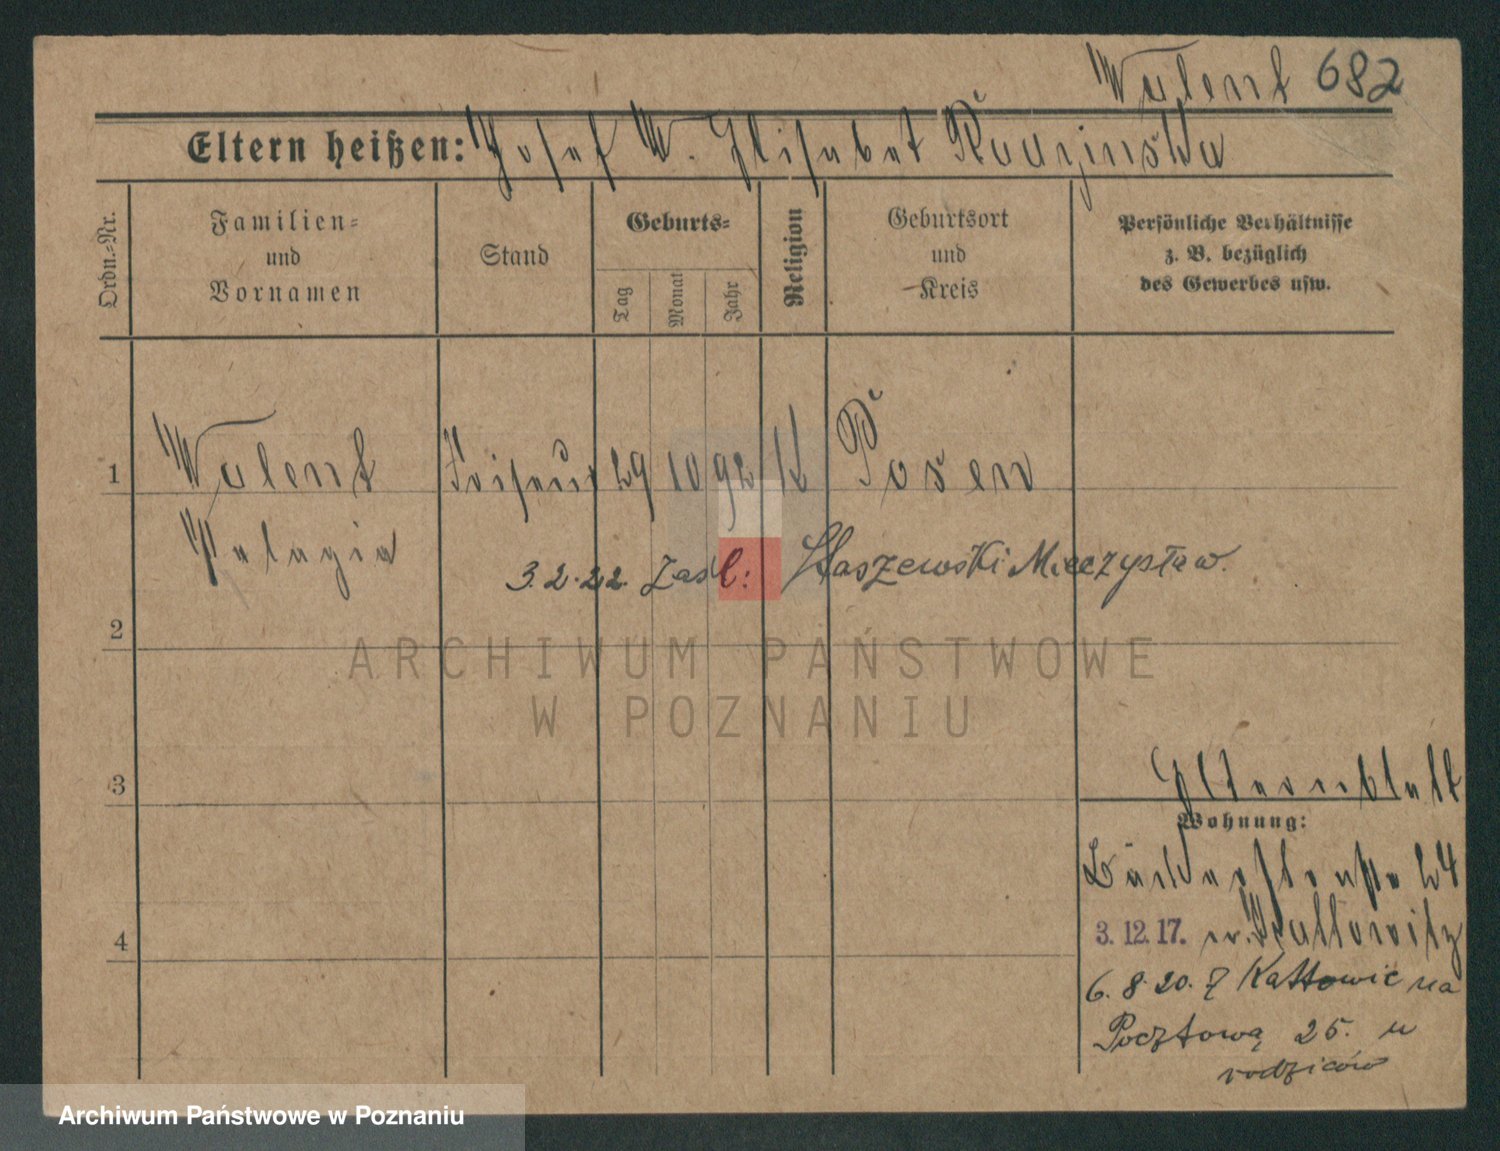 Walent 682
Eltern heißen: Josef W. Elisabet Radzinska
Ordn.-Nr.
Familien-
und
Vornamen
Stand
Geburts-
Tag
Monat
Jahr
Religion
Geburtsort
und
Kreis
Persönliche Verhältnisse
z. B. bezüglich
des Gewerbes usw.
1 Walent Friseur 29 10 92 K Posen
Pelagia
3.2.22. Zaśl: Staszewski Mieczysław.
2
3
4
Elternblatt
Wohnung:
Bäckerstraße 24
3. 12. 17. n. Kattowitz
6. 8. 20. Z Kattowic na
Pocztową 25. u
rodziców
ARCHIWUM PAŃSTWOWE
W POZNANIU
Archiwum Państwowe w Poznaniu